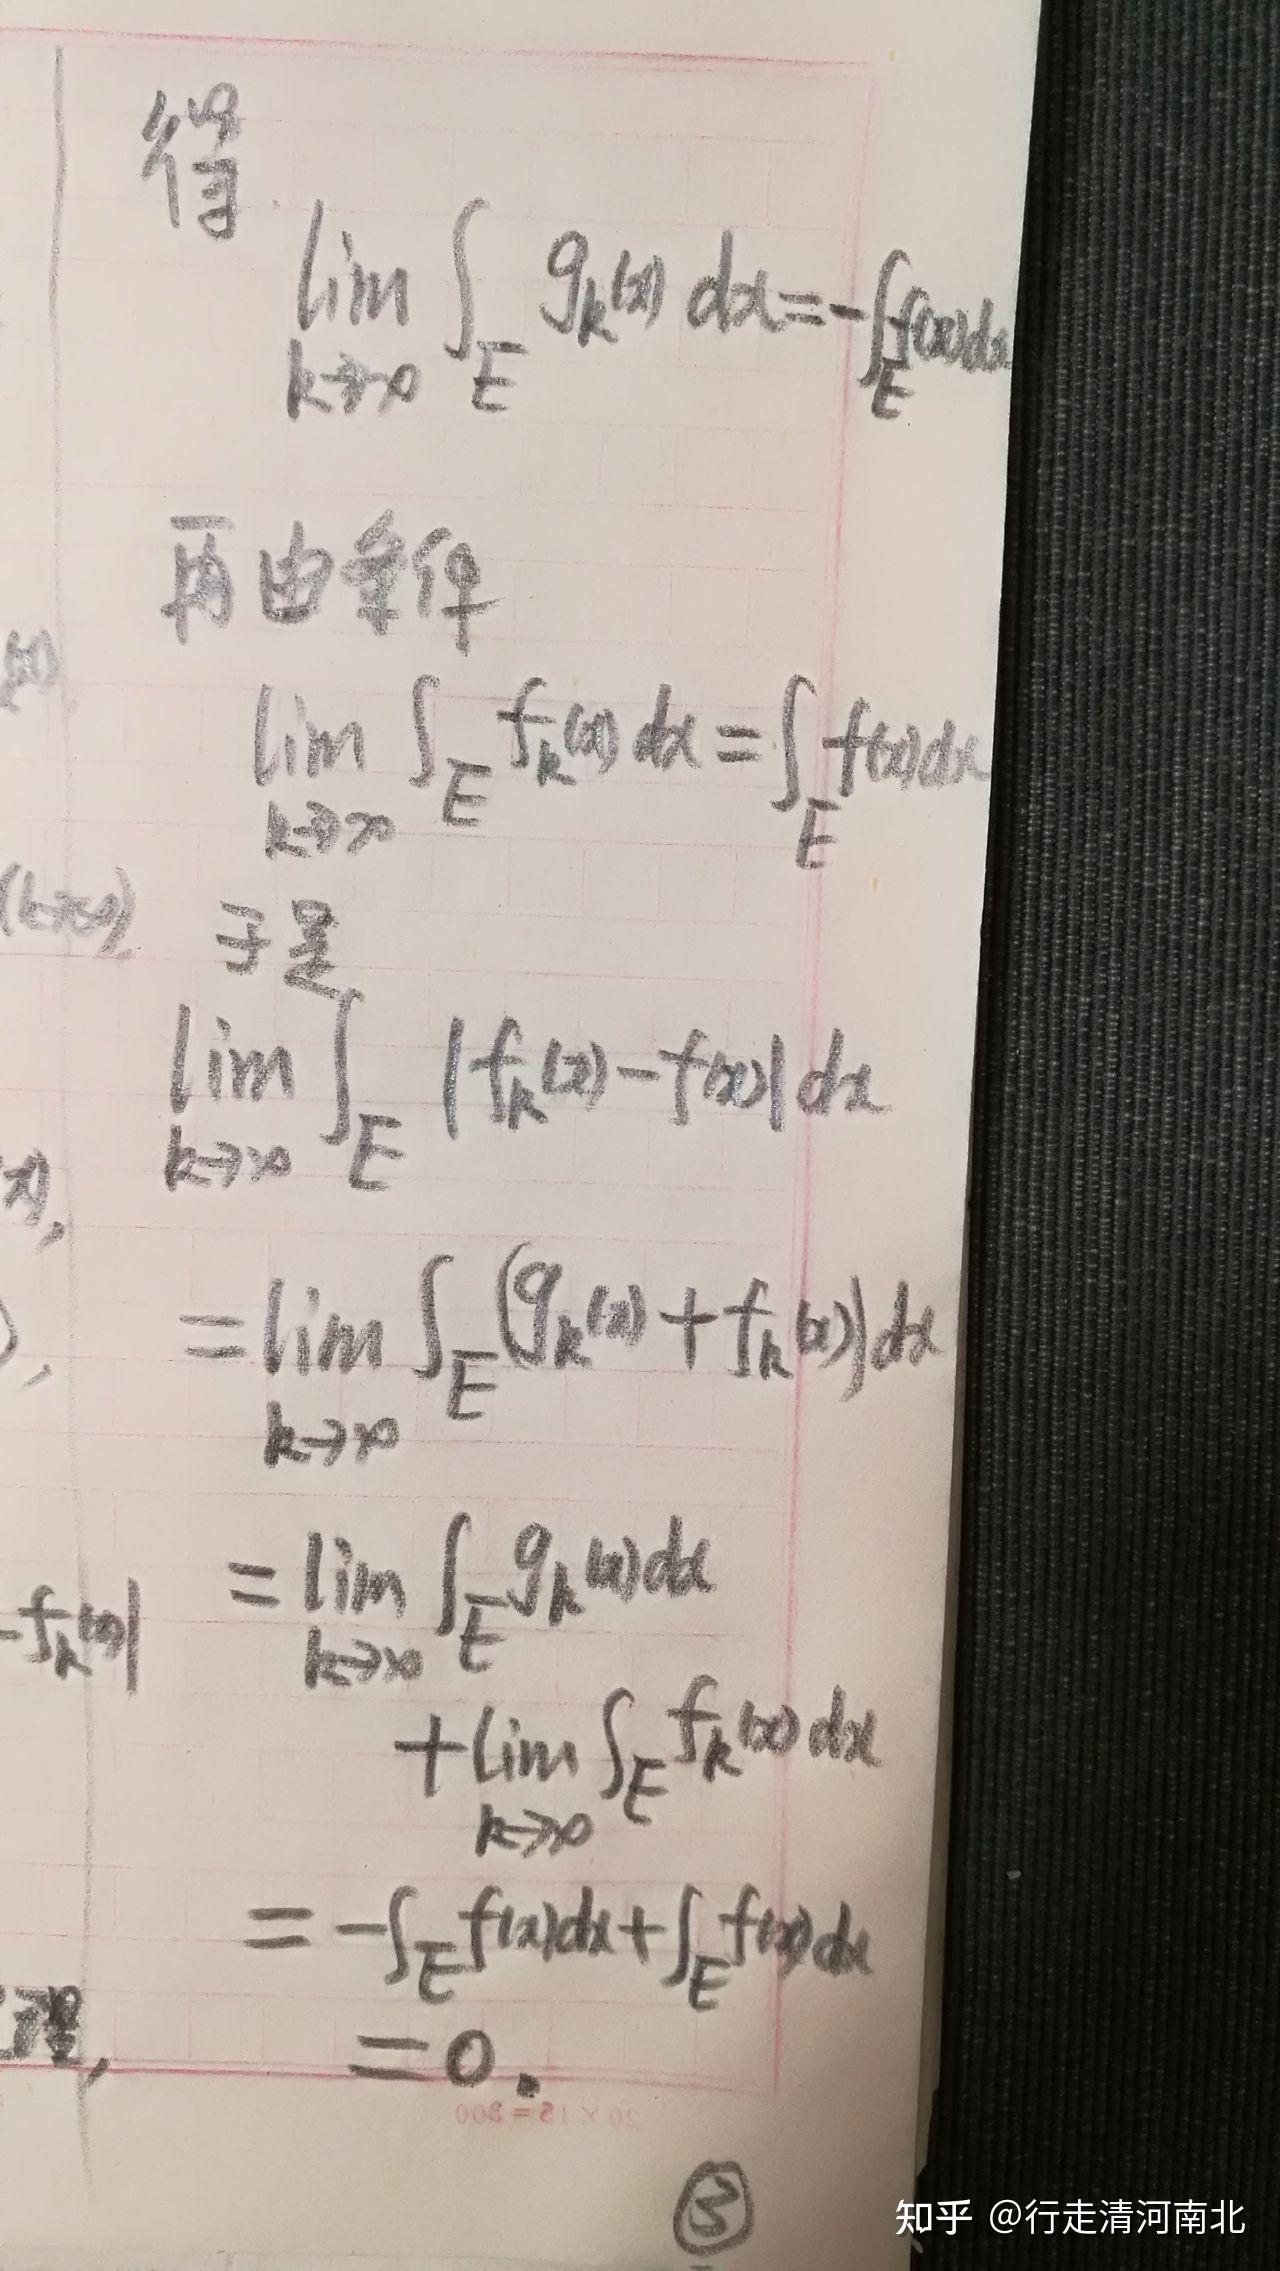 得
lim ∫_E g_k(x) dx = -∫_E f(x)dx
k→∞
再由条件
lim ∫_E f_k(x) dx = ∫_E f(x)dx
k→∞
(k→∞)
于是
lim ∫_E |f_k(x) - f(x)| dx
k→∞
= lim ∫_E (g_k(x) + f_k(x)) dx
k→∞
= lim ∫_E g_k(x) dx
k→∞
-f_k(x)|
+ lim ∫_E f_k(x) dx
k→∞
= -∫_E f(x)dx + ∫_E f(x)dx
理,
= 0.
20×15=300
③
知乎 @行走清河南北